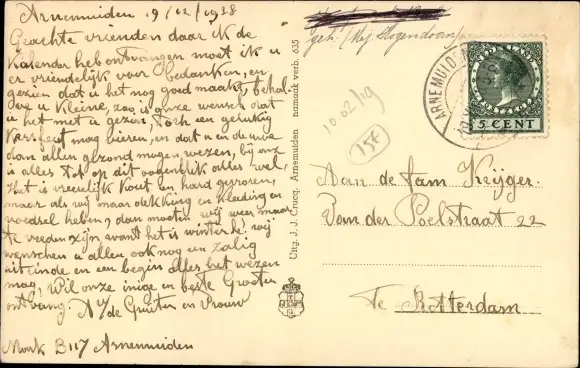 Arnemuiden 19/12/1938
Geachte vrienden daar ik de
Kalender heb ontvangen moet ik u
er vriendelijk voor bedanken, en
gezien dat u het nog goed maakt, behal-
ve u kleine, zoo is onze wensch dat
u het met u gezin, toch een gelukkig
Kersfeest mag vieren, en dat u en de uwe
dan allen gezond mogen wezen, bij ons
is alles tot op dit oogenblik alles wel,
Het is vreeselijk kout en hard gevroren,
maar als wij maar dekking en kleeding en
voedsel heben, dan moeten wij weer maar
te vreeden zijn, want het is winter he, wij
wenschen u allen ook nog een zalig
uiteinde en een begin alles het wezen
mag, Wil onze inige en beste Groeten
ontvang. A v/de Gruiter en Vrouw
Monk B117 Arnemuiden
Uitg. J. J. Crucq. Arnemuiden namaak verb. 635
get: (Mij. Slogendoorn)
10 02/19
15E
ARNEMUIDEN
5 CENT
Aan de fam Keijzer.
Van der Poelstraat 22
Te Rotterdam